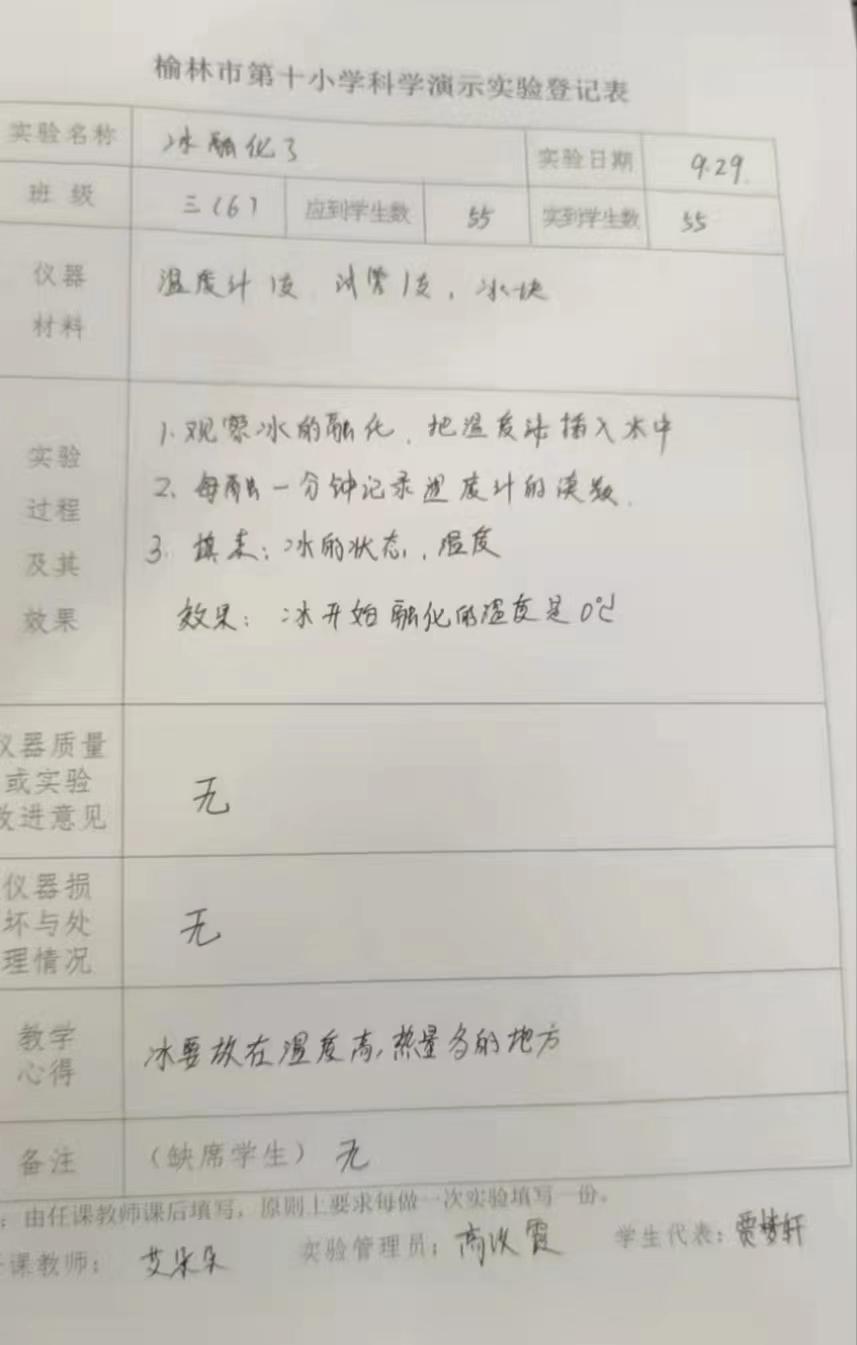 榆林市第十小学科学演示实验登记表
实验名称 冰融化了 实验日期 9.29
班 级 三(6) 应到学生数 55 实到学生数 55
仪器
材料
温度计1支 试管1支, 冰块
实验
过程
及其
效果
1. 观察冰的融化, 把温度计插入木中
2. 每融一分钟记录温度计的读数.
3. 填表: 冰的状态, 温度
效果: 冰开始融化的温度是0℃
仪器质量
或实验
改进意见
无
仪器损
坏与处
理情况
无
教学
心得
冰要放在温度高,热量多的地方
备注 (缺席学生) 无
: 由任课教师课后填写,原则上要求每做一次实验填写一份。
课教师: 艾朵朵 实验管理员: 高 霞 学生代表: 贾梦轩